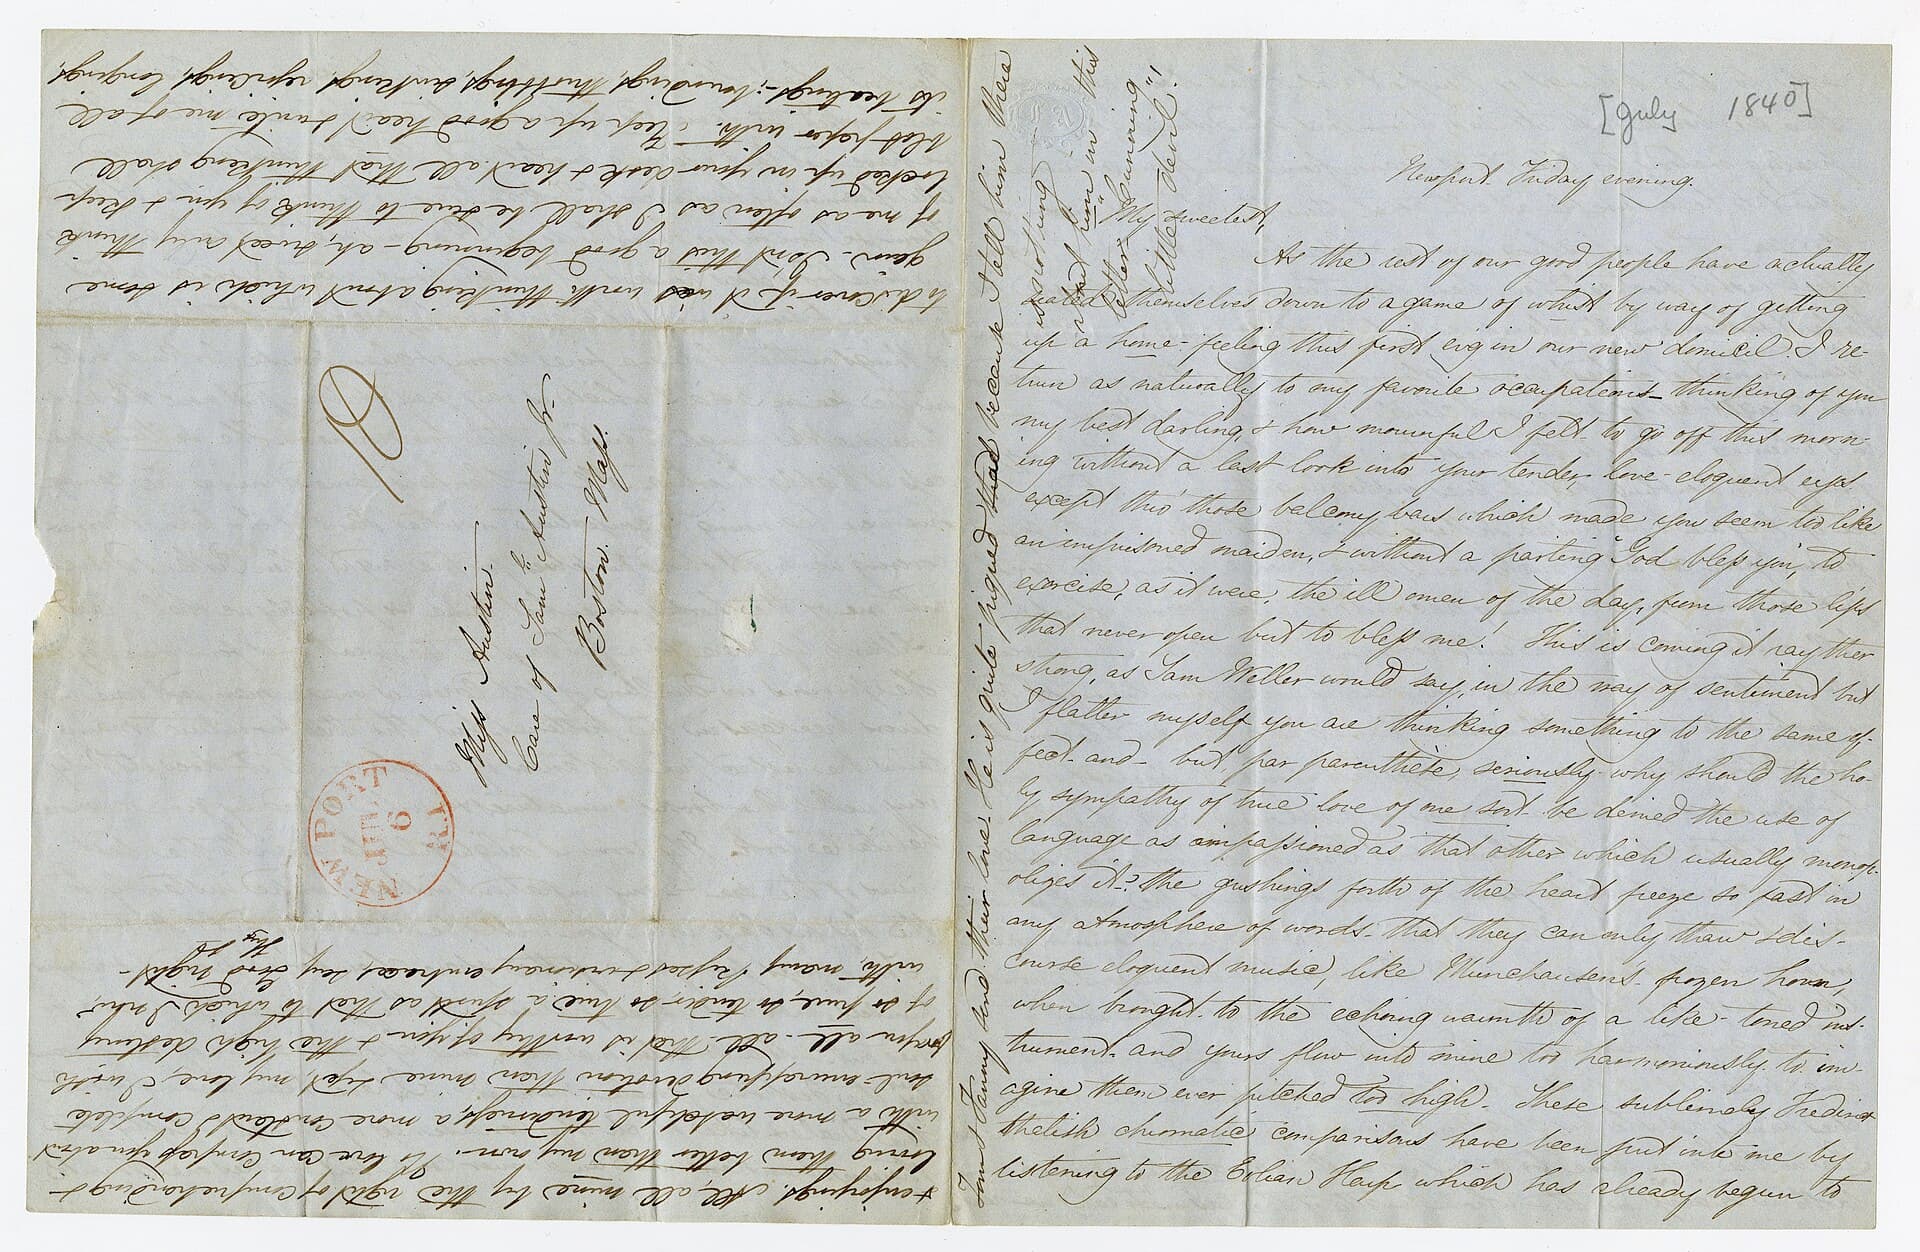 [July 1840]
Newport Friday evening.
My sweetest,
As the rest of our good people have actually
seated themselves down to a game of whist by way of getting
up a home-feeling this first evg in our new domicil. I re-
turn as naturally to my favorite occupations - thinking of you
my best darling, & how mournful I felt to go off this morn-
ing without a last look into your tender, love-eloquent eyes
except thro' those balcony bars which made you seem too like
an imprisoned maiden, & without a parting "God bless you", to
exorcise, as it were, the ill omen of the day, from those lips
that never open but to bless me! This is coming it rayther
strong, as Sam Weller would say, in the way of sentiment but
I flatter myself you are thinking something to the same ef-
fect - and - but, par parenthèse, seriously - why should the ho-
ly sympathy of true love of one sort be denied the use of
language as impassioned as that other which usually monop-
olizes it? The gushings forth of the heart freeze so fast in
any atmosphere of words - that they can only thaw & dis-
course eloquent music, like Munchausen's frozen horn,
when brought to the echoing warmth of a like-toned ins-
trument - and yours flow into mine too harmoniously to im-
agine them ever pitched too high. These sublimely
chromatic comparisons have been put into me by
listening to the Eolian Harp which has already begun to
to discover if it was worth thinking about which is some
gain - Isn't this a good beginning - ah, dearest any think
of me as often as I shall be sure to think of you & keep
locked up in your desk & heart all that thinking shall
blot paper with. Keep up a good heart & write me of all
its beatings; boundings, throbbings, sinkings, regrettings, longings,
& enjoyings. All, all mine by the right of comprehending &
loving them better than my own. No love can compass you about
with a more watchful tenderness, a more constant & complete
soul-enwrapping devotion than mine & yet, my love, I wish
for you all - all that is worthy of you & the high destiny
of so pure, so tender, so true a spirit as that to which I now,
with many kisses & visionary embraces, say Good night -
Miss Austin.
Care of Sam'l Austin Jr.
Boston. Mass.
10
NEWPORT R.I.
JUL
6
Tom & Fanny send their love. He is quite piqued that because I tell him there
is nothing
about him in this
letter "Cunning
little devil"!